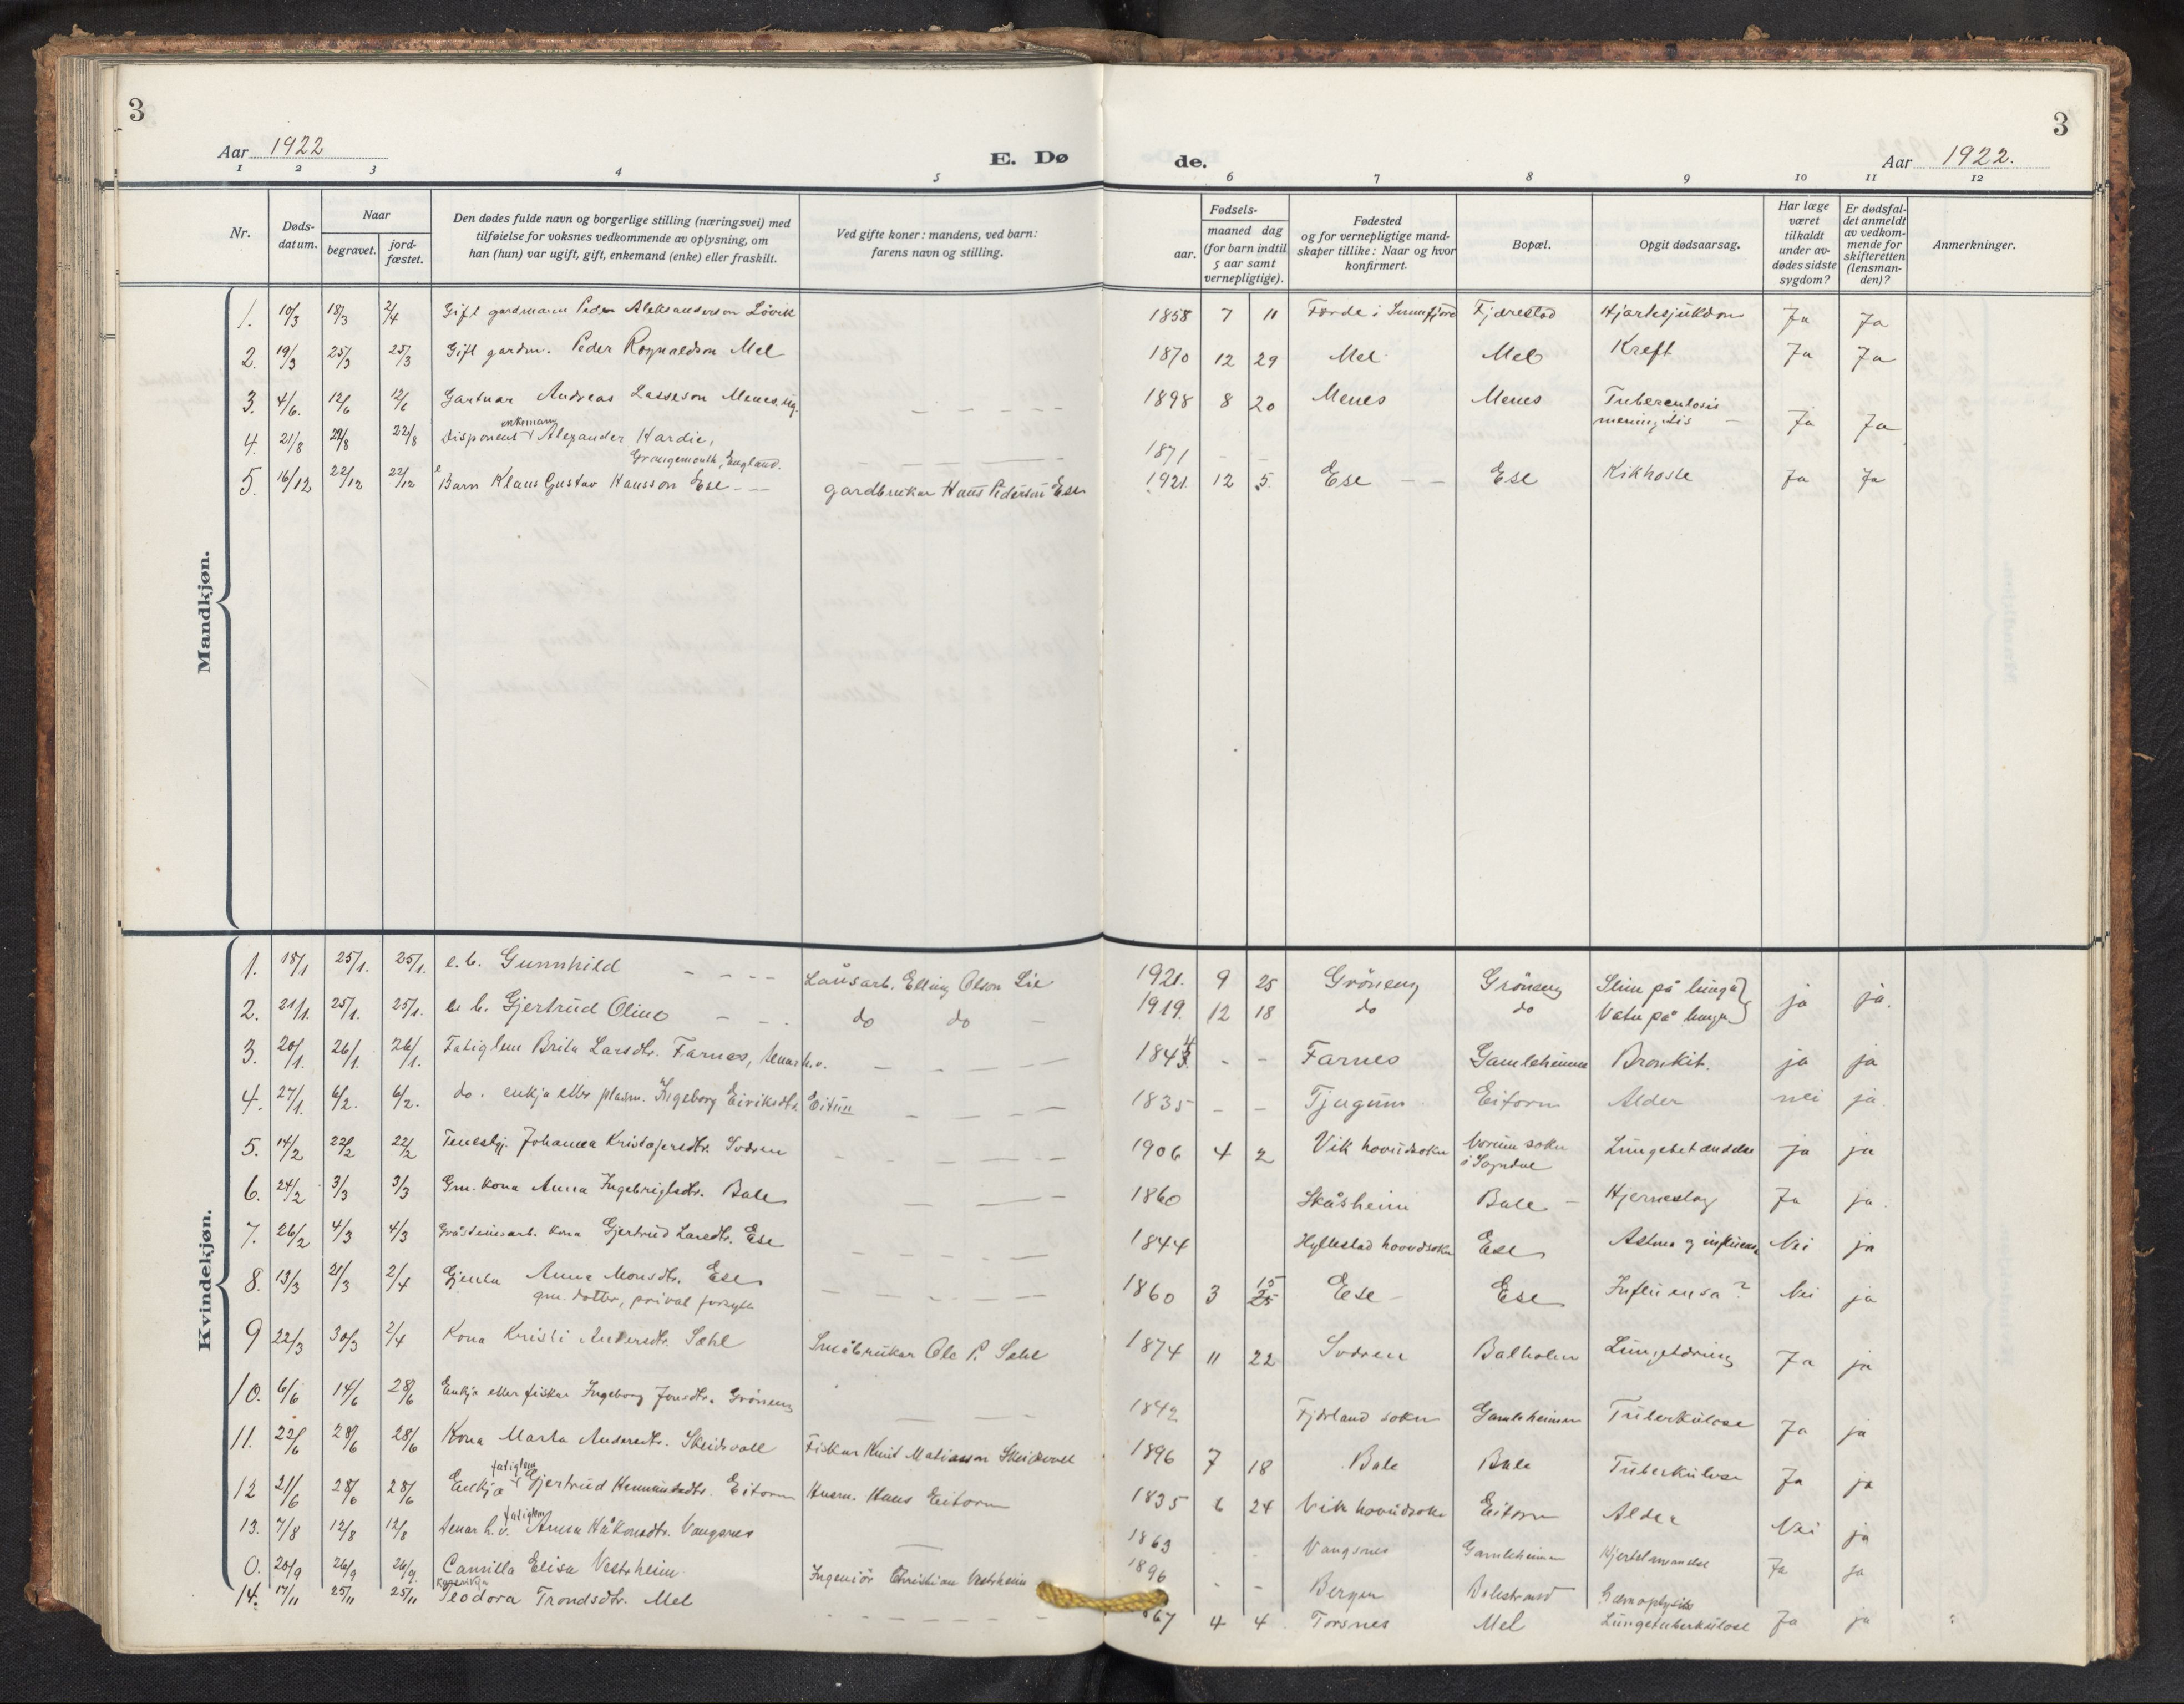 3
Aar 1922
E. Dø
1 2 3 4 5
Nr.
Døds-
datum.
Naar
begravet.
jord-
fæstet.
Den dødes fulde navn og borgerlige stilling (næringsvei) med
tilføielse for voksnes vedkommende av oplysning, om
han (hun) var ugift, gift, enkemand (enke) eller fraskilt.
Ved gifte koner: mandens, ved barn:
farens navn og stilling.
3
de.
Aar 1922.
6 7 8 9 10 11 12
aar.
Fødsels-
maaned dag
(for barn indtil
5 aar samt
vernepligtige).
Fødested
og for vernepligtige mand-
skaper tillike: Naar og hvor
konfirmert.
Bopæl.
Opgit dødsaarsag.
Har læge
været
tilkaldt
under av-
dødes sidste
sygdom?
Er dødsfal-
det anmeldt
av vedkom-
mende for
skifteretten
(lensman-
den)?
Anmerkninger.
Mandkjøn.
1. 10/3 18/3 2/4 Gift gardmann Peder Aleksanderson Lövik 1858 7 11 Förde i Sunnfjord Fjærestad Hjartesjukdom Ja Ja
2. 19/3 25/3 25/3 Gift gardm. Peder Rognaldson Mel 1870 12 29 Mel Mel Kreft Ja Ja
3. 4/6. 12/6 12/6 Gartnar Andreas Lasseson Menes, ug. 1898 8 20 Menes Menes Tuberculosis
meningitis Ja Ja
enkemann
4. 21/8 22/8 22/8 Disponent Alexander Hardie,
Grangemouth, England. 1871 - -
5. 16/12 22/12 22/12 e Barn Klaus Gustav Hansson Ese gardbrukar Hans Pederson Ese 1921. 12 5. Ese Ese Kikhoste Ja Ja
Kvindekjøn.
1. 18/1 25/1. 25/1. e.b. Gunnhild Låusarb. Elling Olson Lie 1921. 9 25 Gröneng Gröneng Slim på lunga ja ja.
2. 21/1. 25/1. 25/1. e. b. Gjertrud Oline do do 1919. 12 18 do do Vatn på lunga
3. 20/1. 26/1. 26/1. Fatiglem Brita Larsdtr. Farnes, tenar h.v. 1843 - - Farnes Gamleheimen Bronkit. ja ja
4. 27/1. 6/2. 6/2. do. enkja etter plassm. Ingeborg Eiriksdtr. Eitun 1835 - - Tjugum Eitorn Alder nei ja
5. 14/2 22/2 22/2 Tenestgj. Johanna Kristofersdtr. Svoren 1906 4 2 Vik hovudsokn Norum sokn
i Sogndal Lungebetændelse ja ja
6. 24/2 3/3 3/3 Gm. kona Anna Ingebrigtsdtr. Bale 1860 Skåsheim Bale Hjerneslag Ja ja.
7. 26/2 4/3 4/3 Gråsteinsarb. kona Gjertrud Larsdtr. Ese 1844 Hyllestad hovudsokn Ese Astma og influensa Nei ja
8. 13/3 21/3 2/4 Gjenta Anna Monsdtr. Ese
gm. dotter, privat forsytt 1860 3 15
25 Ese Ese Influensa? Nei ja
9 22/3 30/3 2/4 Kona Kristi Andersdtr. Sæhl Småbrukar Ole P. Sæhl 1874 11 22 Svoren Balholm Lungetæring Ja ja
10. 6/6 14/6 28/6 Enkja etter fiskar Ingeborg Jonsdtr. Gröneng 1842 Fjærland sokn Gamleheimen Tuberkulose Ja ja
11. 22/6 28/6 28/6 Kona Marta Andersdtr. Skeidsvoll Fiskar Knut Matiasson Skeidsvoll 1896 7 18 Bale Bale Tuberkulose Ja ja
fatiglem
12 21/6 28/6 28/6 Enkja Gjertrud Hermundsdtr. Eitorn Husm. Hans Eitorn 1835 6 24 Vik hovudsokn Eitorn Alder Nei ja
fatiglem
13. 7/8 12/8 12/8 tenar h.v. Anna Håkonsdtr. Vangsnes 1863 - - Vangsnes Gamleheimen Hjertelammelse Ja ja
0. 20/9 26/9 26/9. Camilla Elisa Vestrheim Ingeniör Christian Vestrheim 1896 - - Bergen Balestrand Hæmoptysis
14. 17/11 25/11 25/11 Teodora Trondsdtr. Mel 67 4 4 Torsnes Mel Lungetuberkulose Ja ja